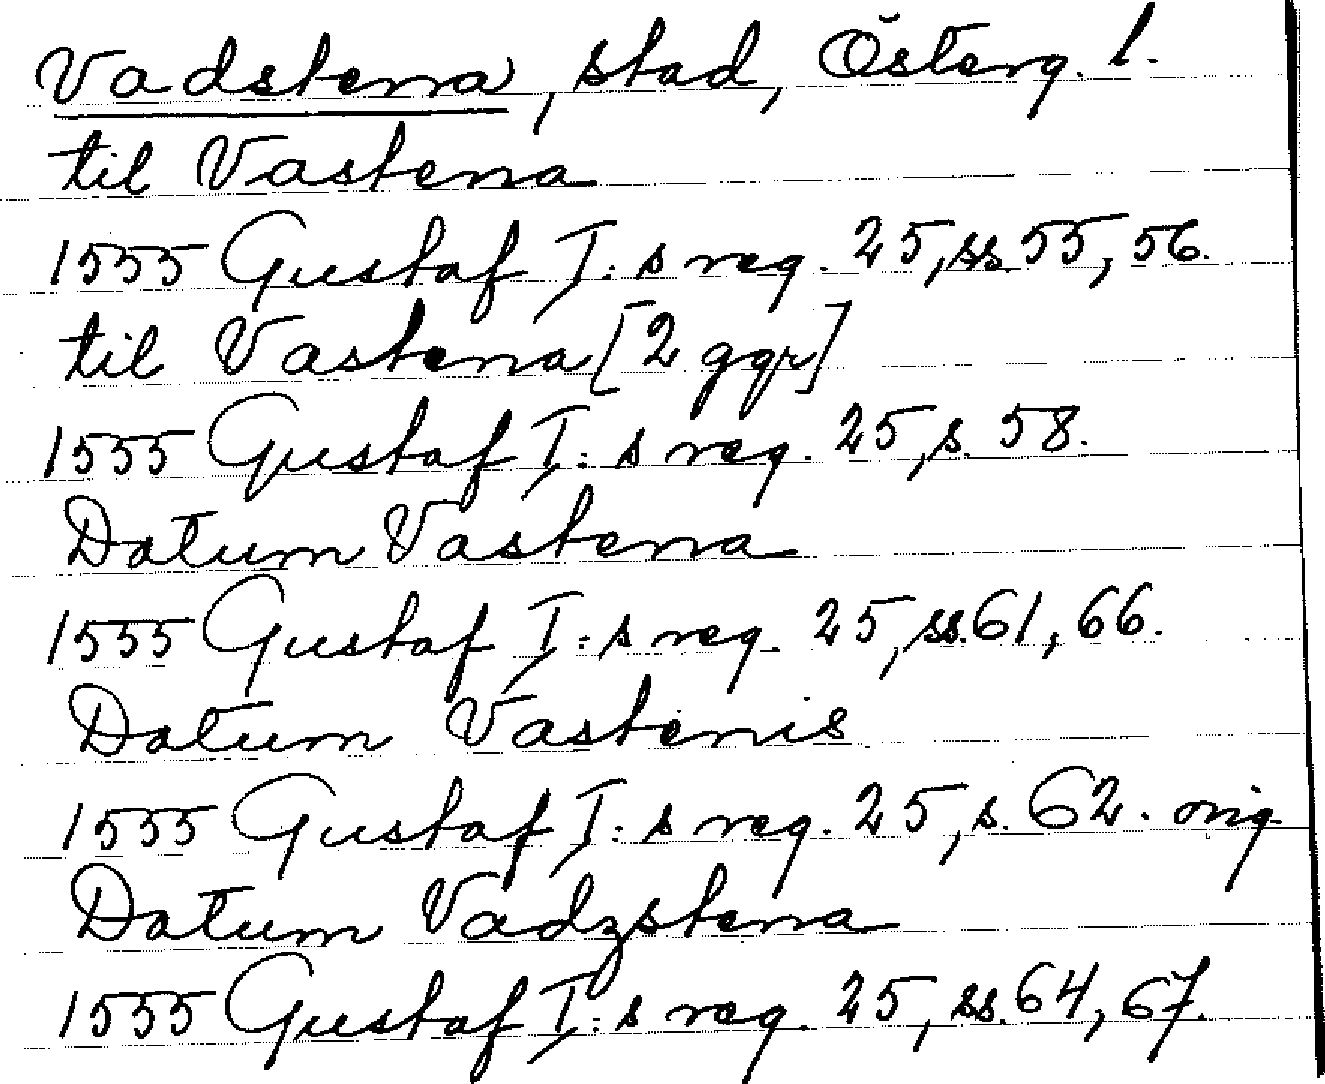 Vadstena, stad, Österg. l.
til Vastena
1555 Gustaf I:s reg. 25, ss. 55, 56.
til Vastena [2 ggr]
1555 Gustaf I:s reg. 25, s. 58.
Datum Vastena
1555 Gustaf I:s reg. 25, ss. 61, 66.
Datum Vastenis
1555 Gustaf I:s reg. 25, s. 62. orig
Datum Vadzstena
1555 Gustaf I:s reg. 25, ss. 64, 67.